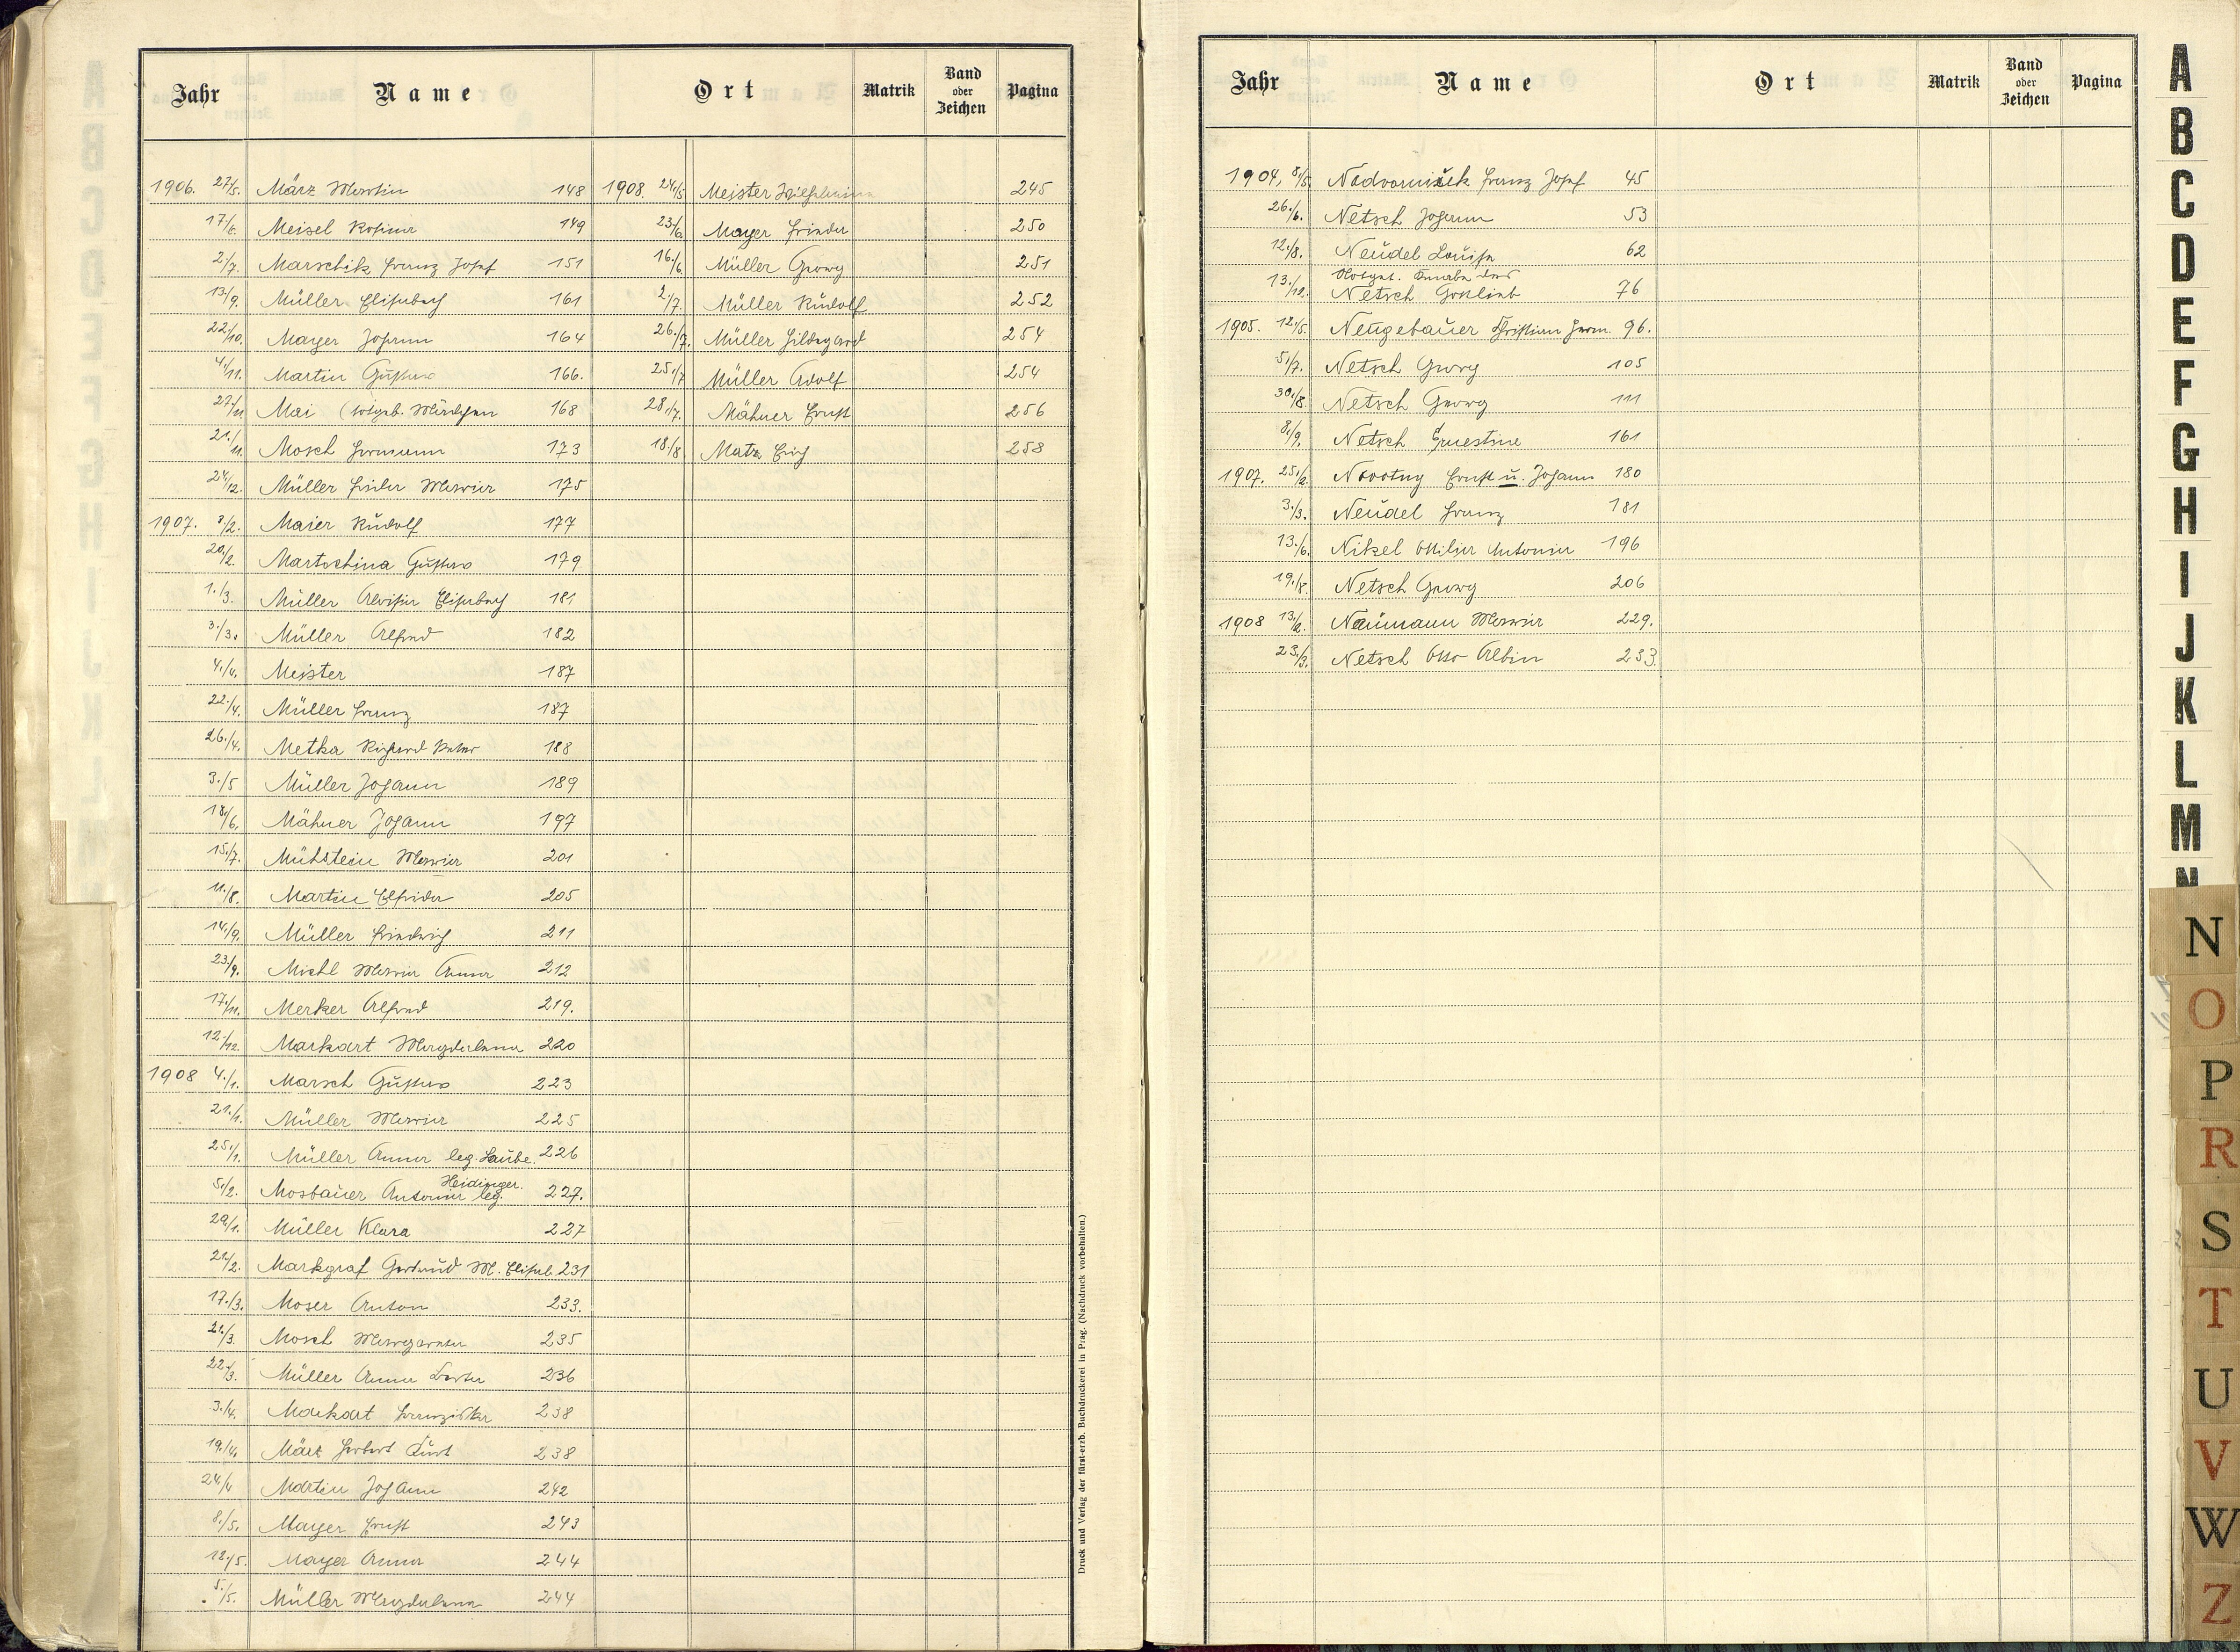 Jahr Name Ort Matrik Band oder Zeichen Pagina
1906. 27/5. März Martin 148
17/6. Meisel Rosina 149
2./7. Marschik Franz Josef 151
13/9. Müller Elisabeth 161
22/10. Mayer Johann 164
4/11. Martin Gustav 166.
27/11 Mai (totgeb. Mädchen 168
21./11. Mosch Hermann 173
24/12. Müller Frieda Maria 175
1907. 3/2. Maier Rudolf 177
20/2. Martschina Gustav 179
1./3. Müller Aloisia Elisabeth 181
3./3. Müller Alfred 182
4./4. Meister 187
22./4. Müller Franz 187
26./4. Metka Richard Peter 188
3./5 Müller Johann 189
18/6. Mähner Johann 197
15./7. Mühstein Maria 201
11./8. Martin Elfrida 205
14./9. Müller Friedrich 211
23/9. Michl Maria Anna 212
17./11. Merker Alfred 219.
12/12. Markart Magdalena 220
1908 4./1. Marsch Gustav 223
21./1. Müller Maria 225
25./1. Müller Anna leg. Laube. 226
Heidinger.
5./2. Mosbauer Antonia leg. 227.
29/1. Müller Klara 227
21/2. Markgraf Gertrud M. Elisab. 231
17./3. Moser Anton 233.
21/3. Mosch Margareta 235
22./3. Müller Anna Berta 236
3./4. Markart Franziska 238
19./4. März Herbert Kurt 238
24./4 Martin Johann 242
8./5. Mayer Ernst 243
12./5. Mayer Anna 244
5./5. Müller Magdalena 244
1908. 24./5 Meister Wilhelmine 245
23/6. Mayer Frieda 250
16./6 Müller Georg 251
2./7. Müller Rudolf 252
26./7. Müller Hildegard 254
25./7 Müller Adolf 254
28./7. Mähner Ernst 256
18./8. Matz Erich 258
Druck und Verlag der fürst-erzb. Buchdruckerei in Prag. (Nachdruck vorbehalten.)
Jahr Name Ort Matrik Band oder Zeichen Pagina
1904, 8/5. Nadvorniček Franz Josef 45
26./6. Netsch Johann 53
12./8. Neudel Louise 62
Totgeb. Knabe des
13./12. Netsch Gottlieb 76
1905. 12./5. Neugebauer Christian Herm. 96.
5./7. Netsch Georg 105
30./8. Netsch Georg 111
8./9. Netsch Ernestine 161
1907. 25./2. Novotny Ernst u. Johann 180
3./3. Neudel Franz 181
13./6. Nikel Ottilie Antonia 196
19./8. Netsch Georg 206
1908 13/2. Naumann Maria 229.
23./3. Netsch Otto Albin 233.
A
B
C
D
E
F
G
H
I
J
K
L
M
N
N
O
P
R
S
T
U
V
W
Z